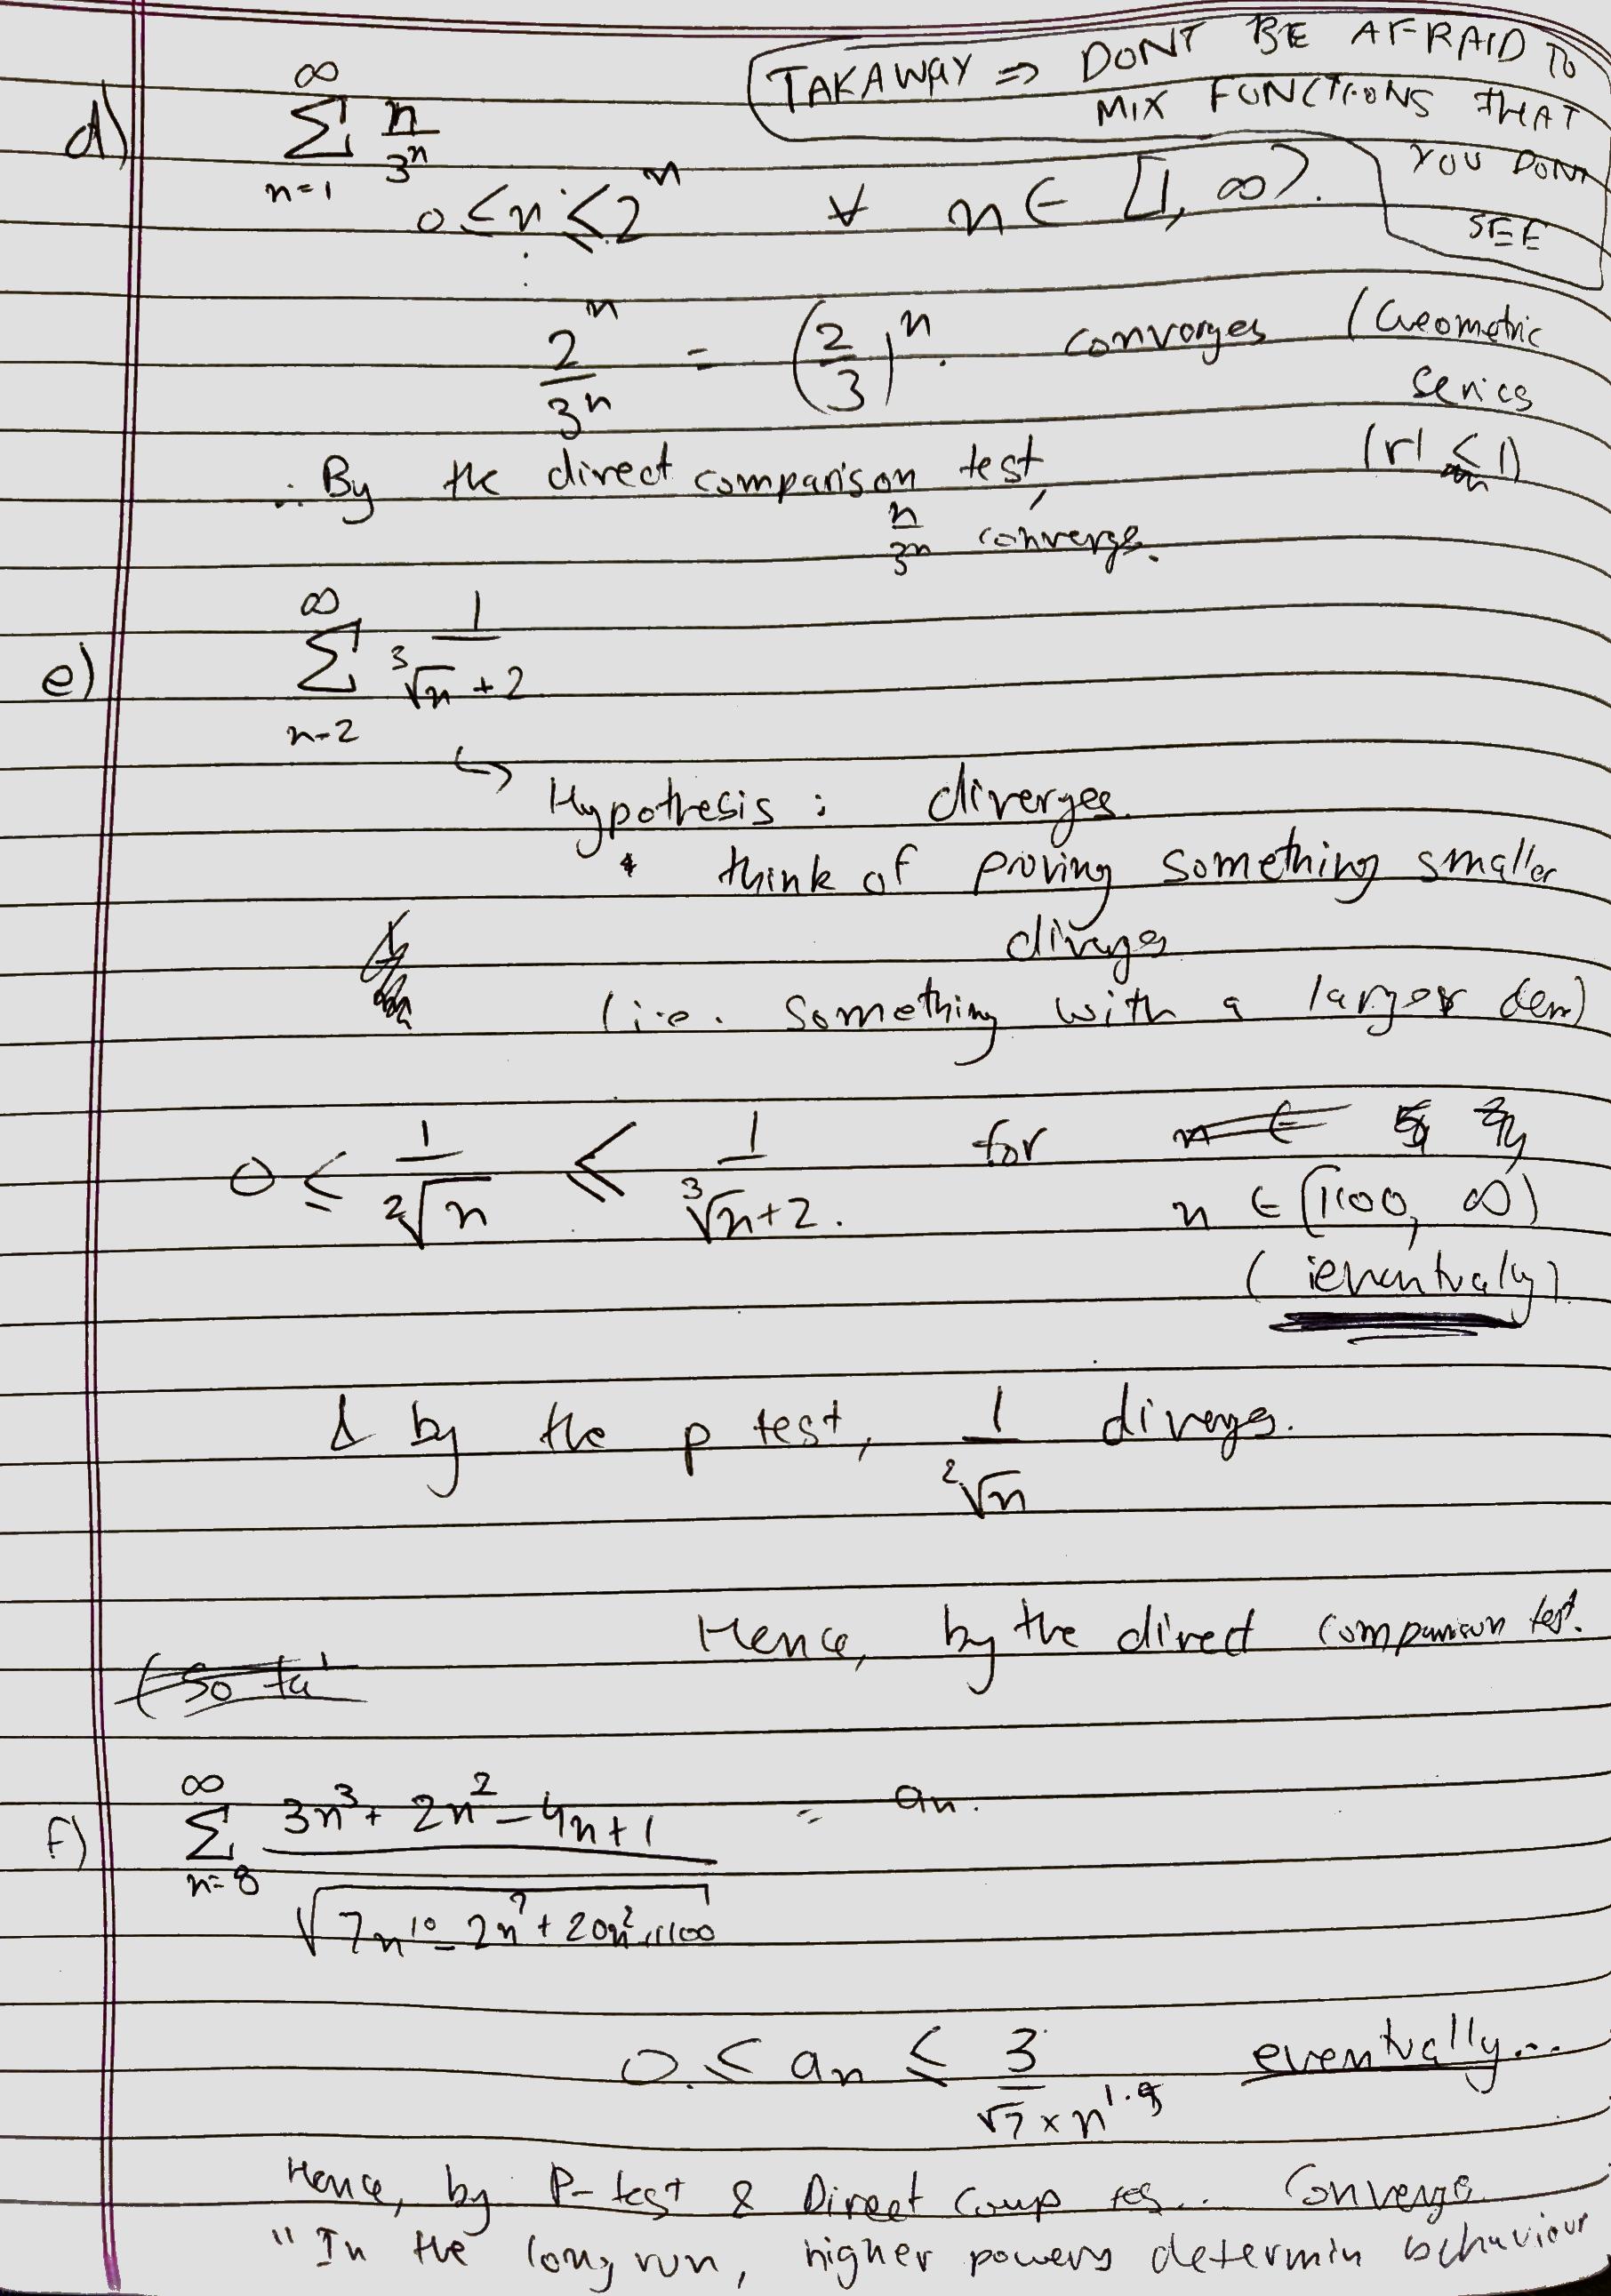 TAKAWAY ⇒ DONT BE AFRAID TO
MIX FUNCTIONS THAT
YOU DONT
SEE
d) ∞ Σ n=1 n/3^n
0 ≤ n ≤ 2^n ∀ n ∈ [1, ∞).
2^n/3^n = (2/3)^n. converges (Geometric
series
|r| < 1)
∴ By the direct comparison test,
n/3^n converge.
e) ∞ Σ n=2 1/(³√n + 2)
↳ Hypothesis : diverges.
* think of proving something smaller
diverges
(i.e. something with a larger den)
0 ≤ 1/²√n ≤ 1/(³√n+2). for
n ∈ [1100, ∞)
(ieventualy).
& by the p test, 1/²√n diverges.
Hence, by the direct comparison test.
(So ta
f) ∞ Σ n=8 (3n³ + 2n² - 4n + 1)/√(7n^10 - 2n^7 + 20n² + 1100) = an.
0 ≤ an ≤ 3/(√7 × n^1.9) eventually...
Hence, by P-test & Direct Comp tes... Converge.
"In the long run, higher powers determin behaviour